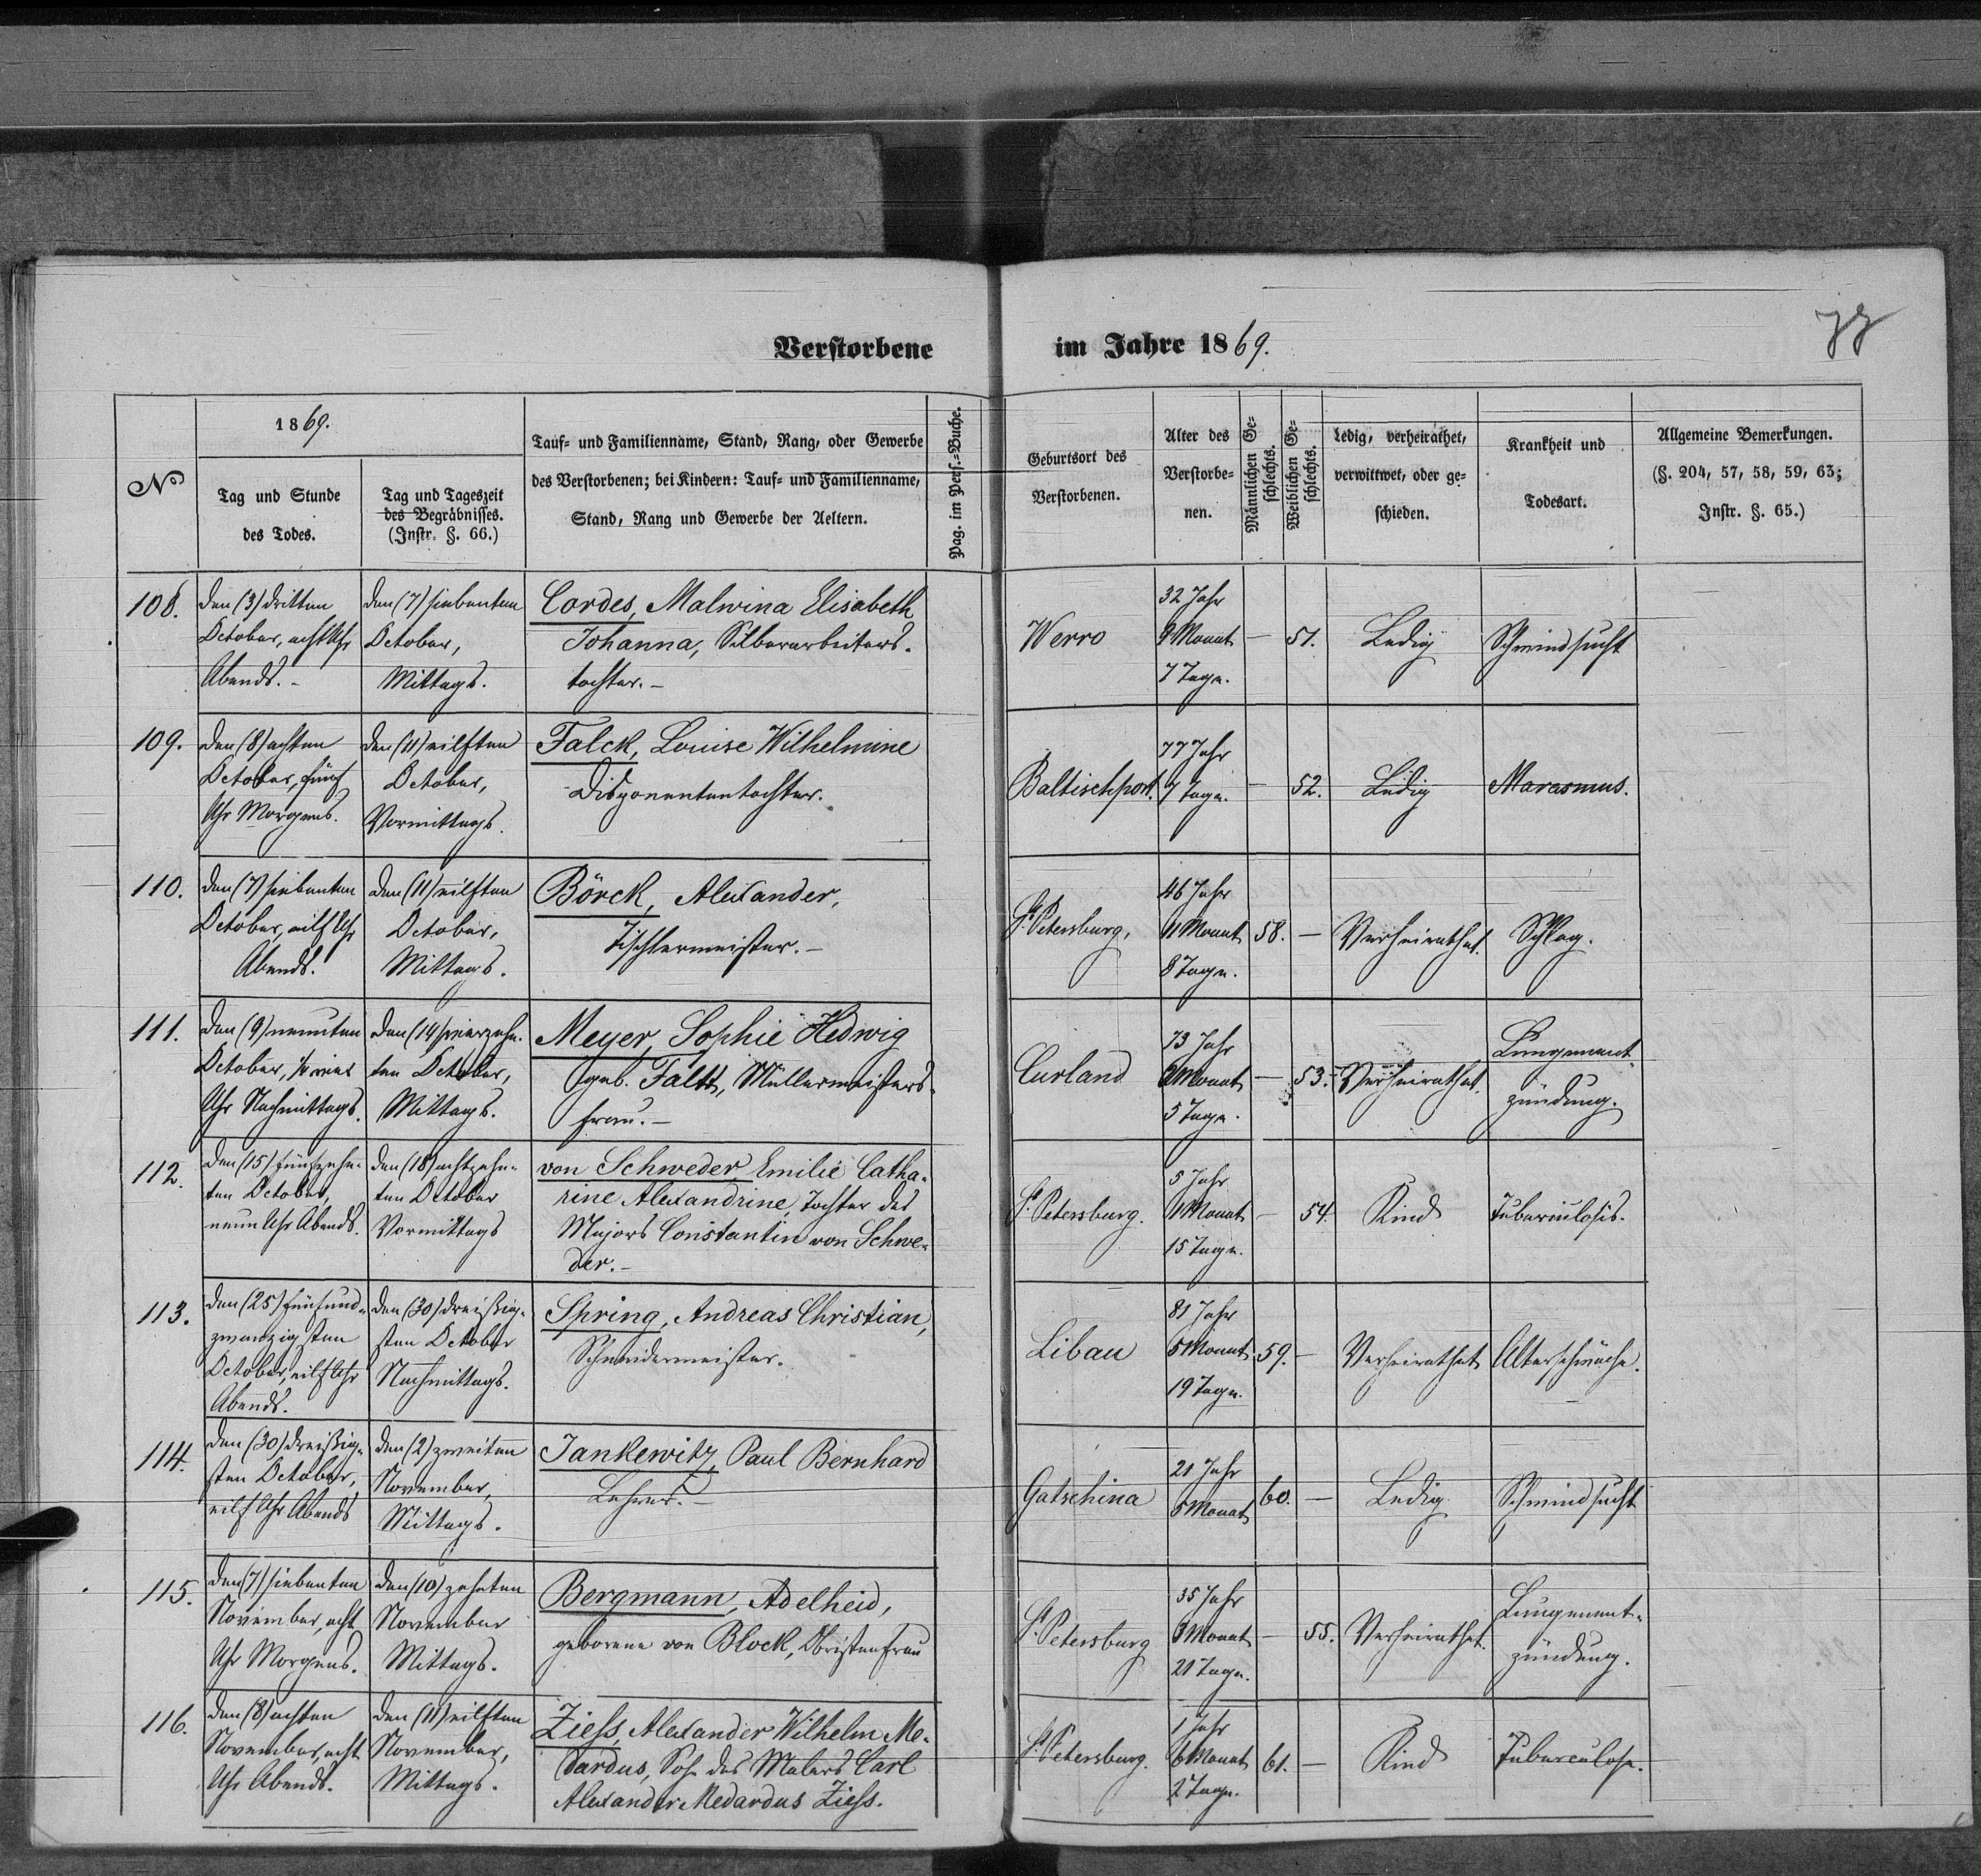 Verstorbene im Jahre 1869.
№
1869.
Tag und Stunde
des Todes.
Tag und Tageszeit
des Begräbnisses.
(Instr. §. 66.)
Tauf- und Familienname, Stand, Rang, oder Gewerbe
des Verstorbenen; bei Kindern: Tauf- und Familienname,
Stand, Rang und Gewerbe der Aeltern.
Pag. im Pers.-Buche.
Geburtsort des
Verstorbenen.
Alter des
Verstorbe-
nen.
Männlichen Ge-
schlechts.
Weiblichen Ge-
schlechts.
Ledig, verheirathet,
verwittwet, oder ge-
schieden.
Krankheit und
Todesart.
Allgemeine Bemerkungen.
(§. 204, 57, 58, 59, 63;
Instr. §. 65.)
108.
den (3) dritten
October, acht Uhr
Abends.-
den (7) siebenten
October,
Mittags.
Cordes, Malwina Elisabeth
Johanna, Silberarbeiters-
tochter.-
Werro
32 Jahr
9 Monat
7 Tage.
—
51.
Ledig
Schwindsucht
109.
den (8) achten
October, fünf
Uhr Morgens.
den (11) eilften
October,
Vormittags.
Falck, Louise Wilhelmine
Disponententochter.
Baltischport.
77 Jahr
7 Tage.
—
52.
Ledig
Marasmus.
110.
den (7) siebenten
October, eilf Uhr
Abends.
den (11) eilften
October,
Mittags.
Börck, Alexander,
Tischlermeister.-
St. Petersburg,
46 Jahr
11 Monat
8 Tage.
58.
—
Verheirathet.
Schlag.
111.
den (9) neunten
October, ½ vier
Uhr Nachmittags.
den (14) vierzehn-
ten October,
Mittags.
Meyer, Sophie Hedwig
geb. Faltt, Müllermeisters-
frau.-
Curland
73 Jahr
Monat
5 Tage.
—
53.
Verheirathet.
Lungenent-
zündung.
112.
den (15) fünfzehn-
ten October,
neun Uhr Abends.
den (18) achtzehn-
ten October
Vormittags
von Schweder, Emilie Catha-
rine Alexandrine, Tochter des
Majors Constantin von Schwe-
der.-
St. Petersburg.
5 Jahr
11 Monat
15 Tage.
—
54.
Kind
Tuberculosis.
113.
den (25) fünfund-
zwanzigsten
October, eilf Uhr
Abends.
den (30) dreißig-
sten October
Nachmittags.
Spring, Andreas Christian,
Schneidermeister.
Libau
81 Jahr
5 Monat
19 Tage.
59.
—
Verheirathet
Altersschwäche.
114.
den (30) dreißig-
sten October,
eilf Uhr Abends
den (2) zweiten
November,
Mittags.
Jankewitz, Paul Bernhard
Lehrer.-
Gatschina
21 Jahr
5 Monat
60.
—
Ledig
Schwindsucht
115.
den (7) siebenten
November, acht
Uhr Morgens.
den (10) zehnten
November
Mittags.
Bergmann, Adelheid,
geborene von Block, Obristenfrau
St. Petersburg
35 Jahr
Monat
21 Tage.
—
55.
Verheirathet.
Lungenent-
zündung.
116.
den (8) achten
November, acht
Uhr Abends.
den (11) eilften
November,
Mittags.
Ziess, Alexander Wilhelm Me-
dardus, Sohn des Malers Carl
Alexander Medardus Ziess.
St. Petersburg.
1 Jahr
6 Monat
2 Tage.
61.
—
Kind
Tuberculose.